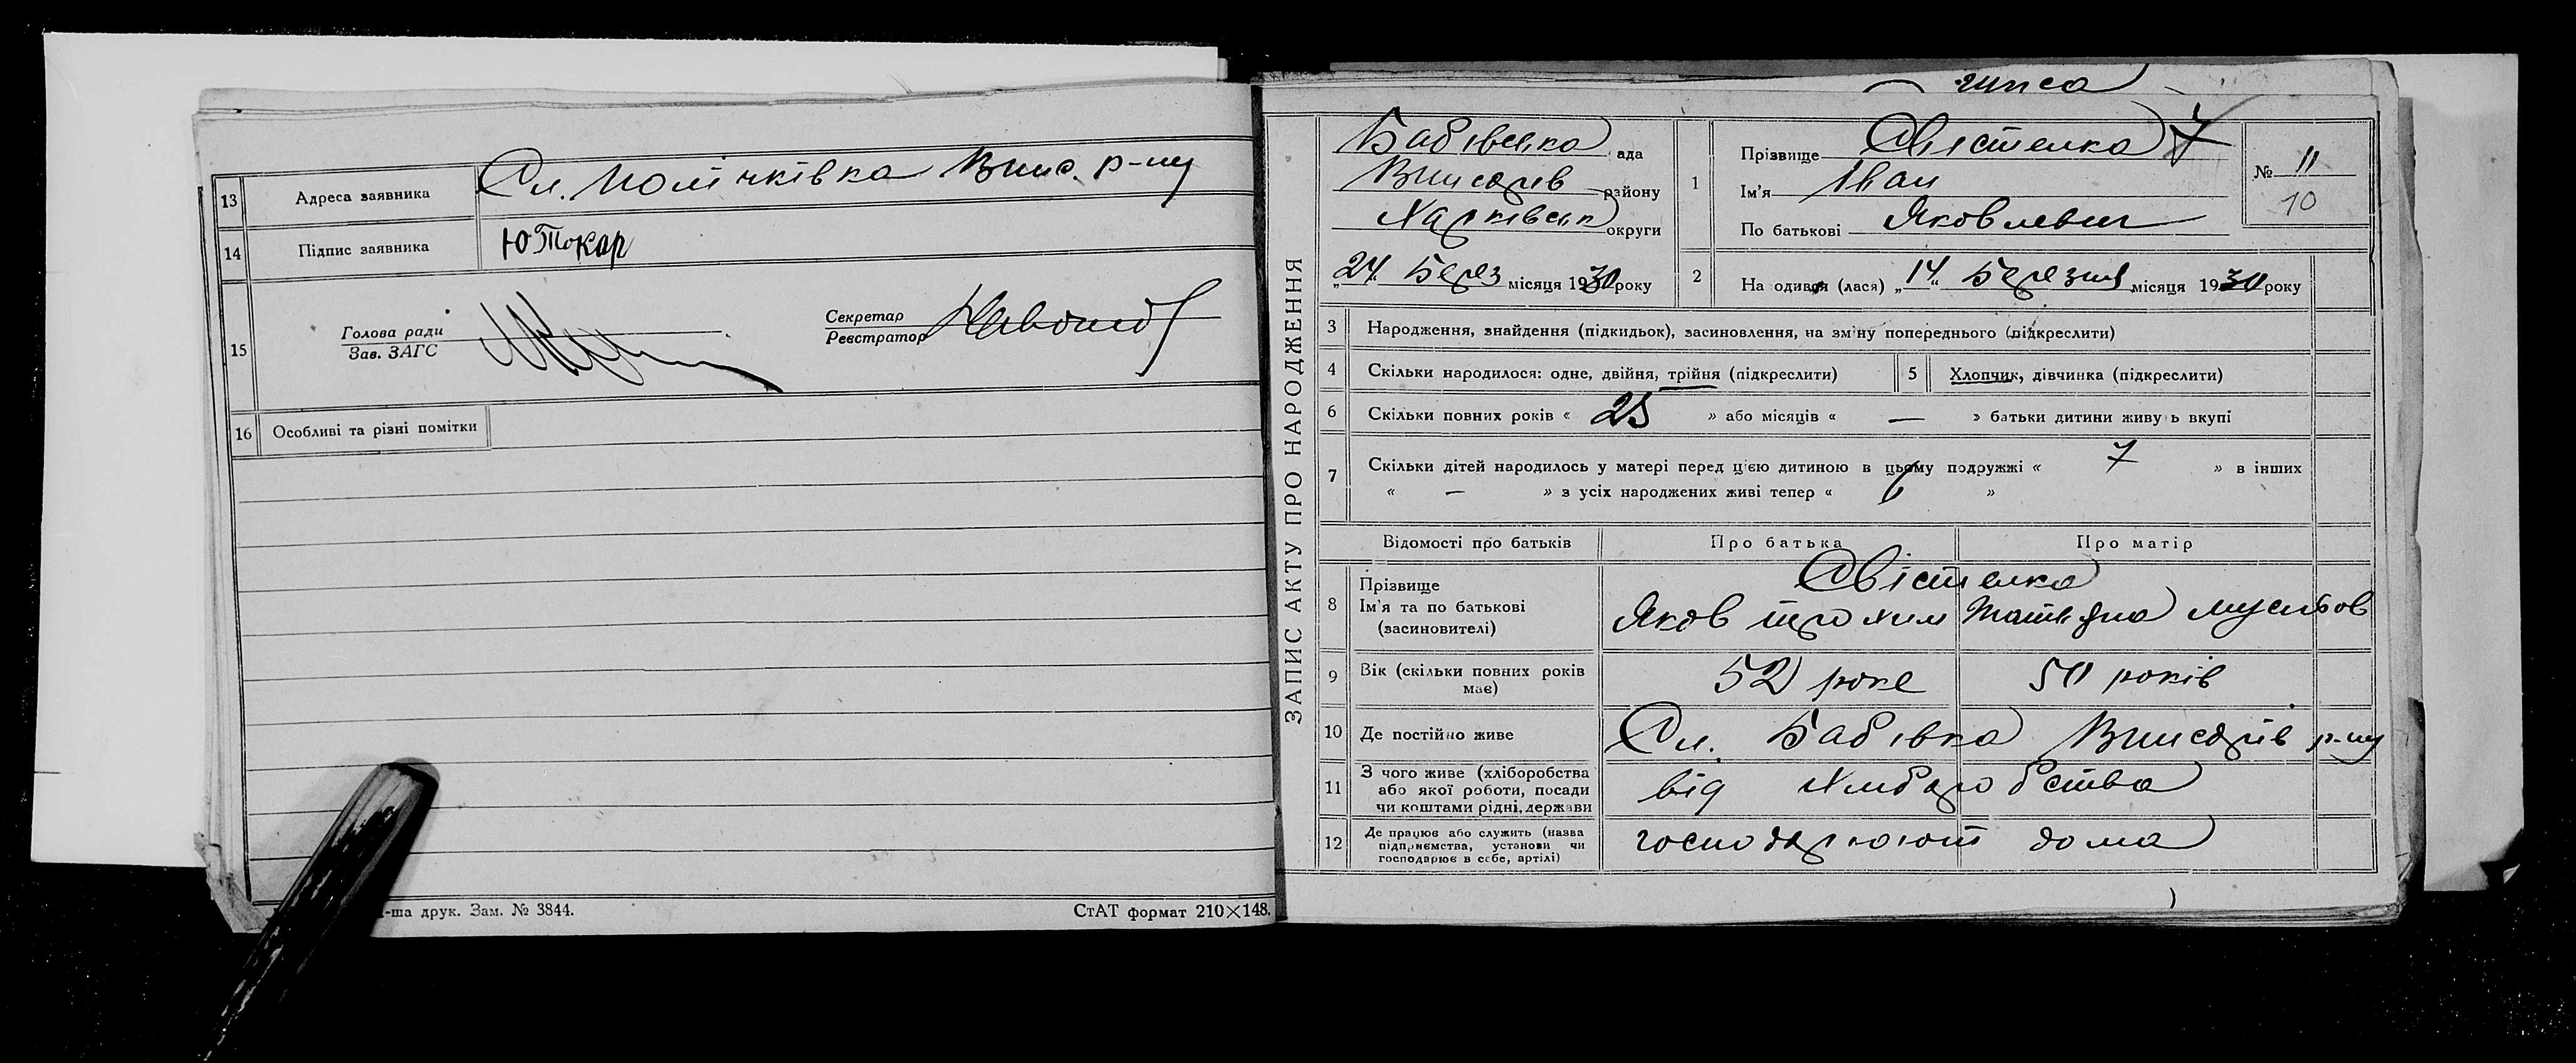 13 Адреса заявника Сл. Полічківка Вшис. р-ну
14 Підпис заявника ЮТокар
15 Голова ради
Зав. ЗАГС
Секретар
Реєстратор
16 Особливі та різні помітки
-ша друк. Зам. № 3844.
СтАТ формат 210×148.
ЗАПИС АКТУ ПРО НАРОДЖЕННЯ
Бабівська ада
району
Харківськ округи
„24“ Берез місяця 1930 року
1 Прізвище Свістелка 7
Ім'я Іван
По батькові Яковлевич
№ 11
10
2 На одився (лася) „14“ Березня місяця 1930 року
3 Народження, знайдення (підкидьок), засиновлення, на зміну попереднього (підкреслити)
4 Скільки народилося: одне, двійня, трійня (підкреслити)
5 Хлопчик, дівчинка (підкреслити)
6 Скільки повних років « 25 » або місяців « — » батьки дитини живуь вкупі
7 Скільки дітей народилось у матері перед цією дитиною в цьому подружжі « 7 » в інших
« — » з усіх народжених живі тепер « »
Відомості про батьків Про батька Про матір
8 Прізвище
Ім'я та по батькові
(засиновителі)
Свістелка
Яков трохим Татьяна
9 Вік (скільки повних років
має)
52 роке 50 років
10 Де постійно живе Сл. Бабівка р-ну
11 З чого живе (хліборобства
або якої роботи, посади
чи коштами рідні, держави
від хлиборобства
12 Де працює або служить (назва
підприємства, установи чи
господарює в себе, артілі)
господарюют дома